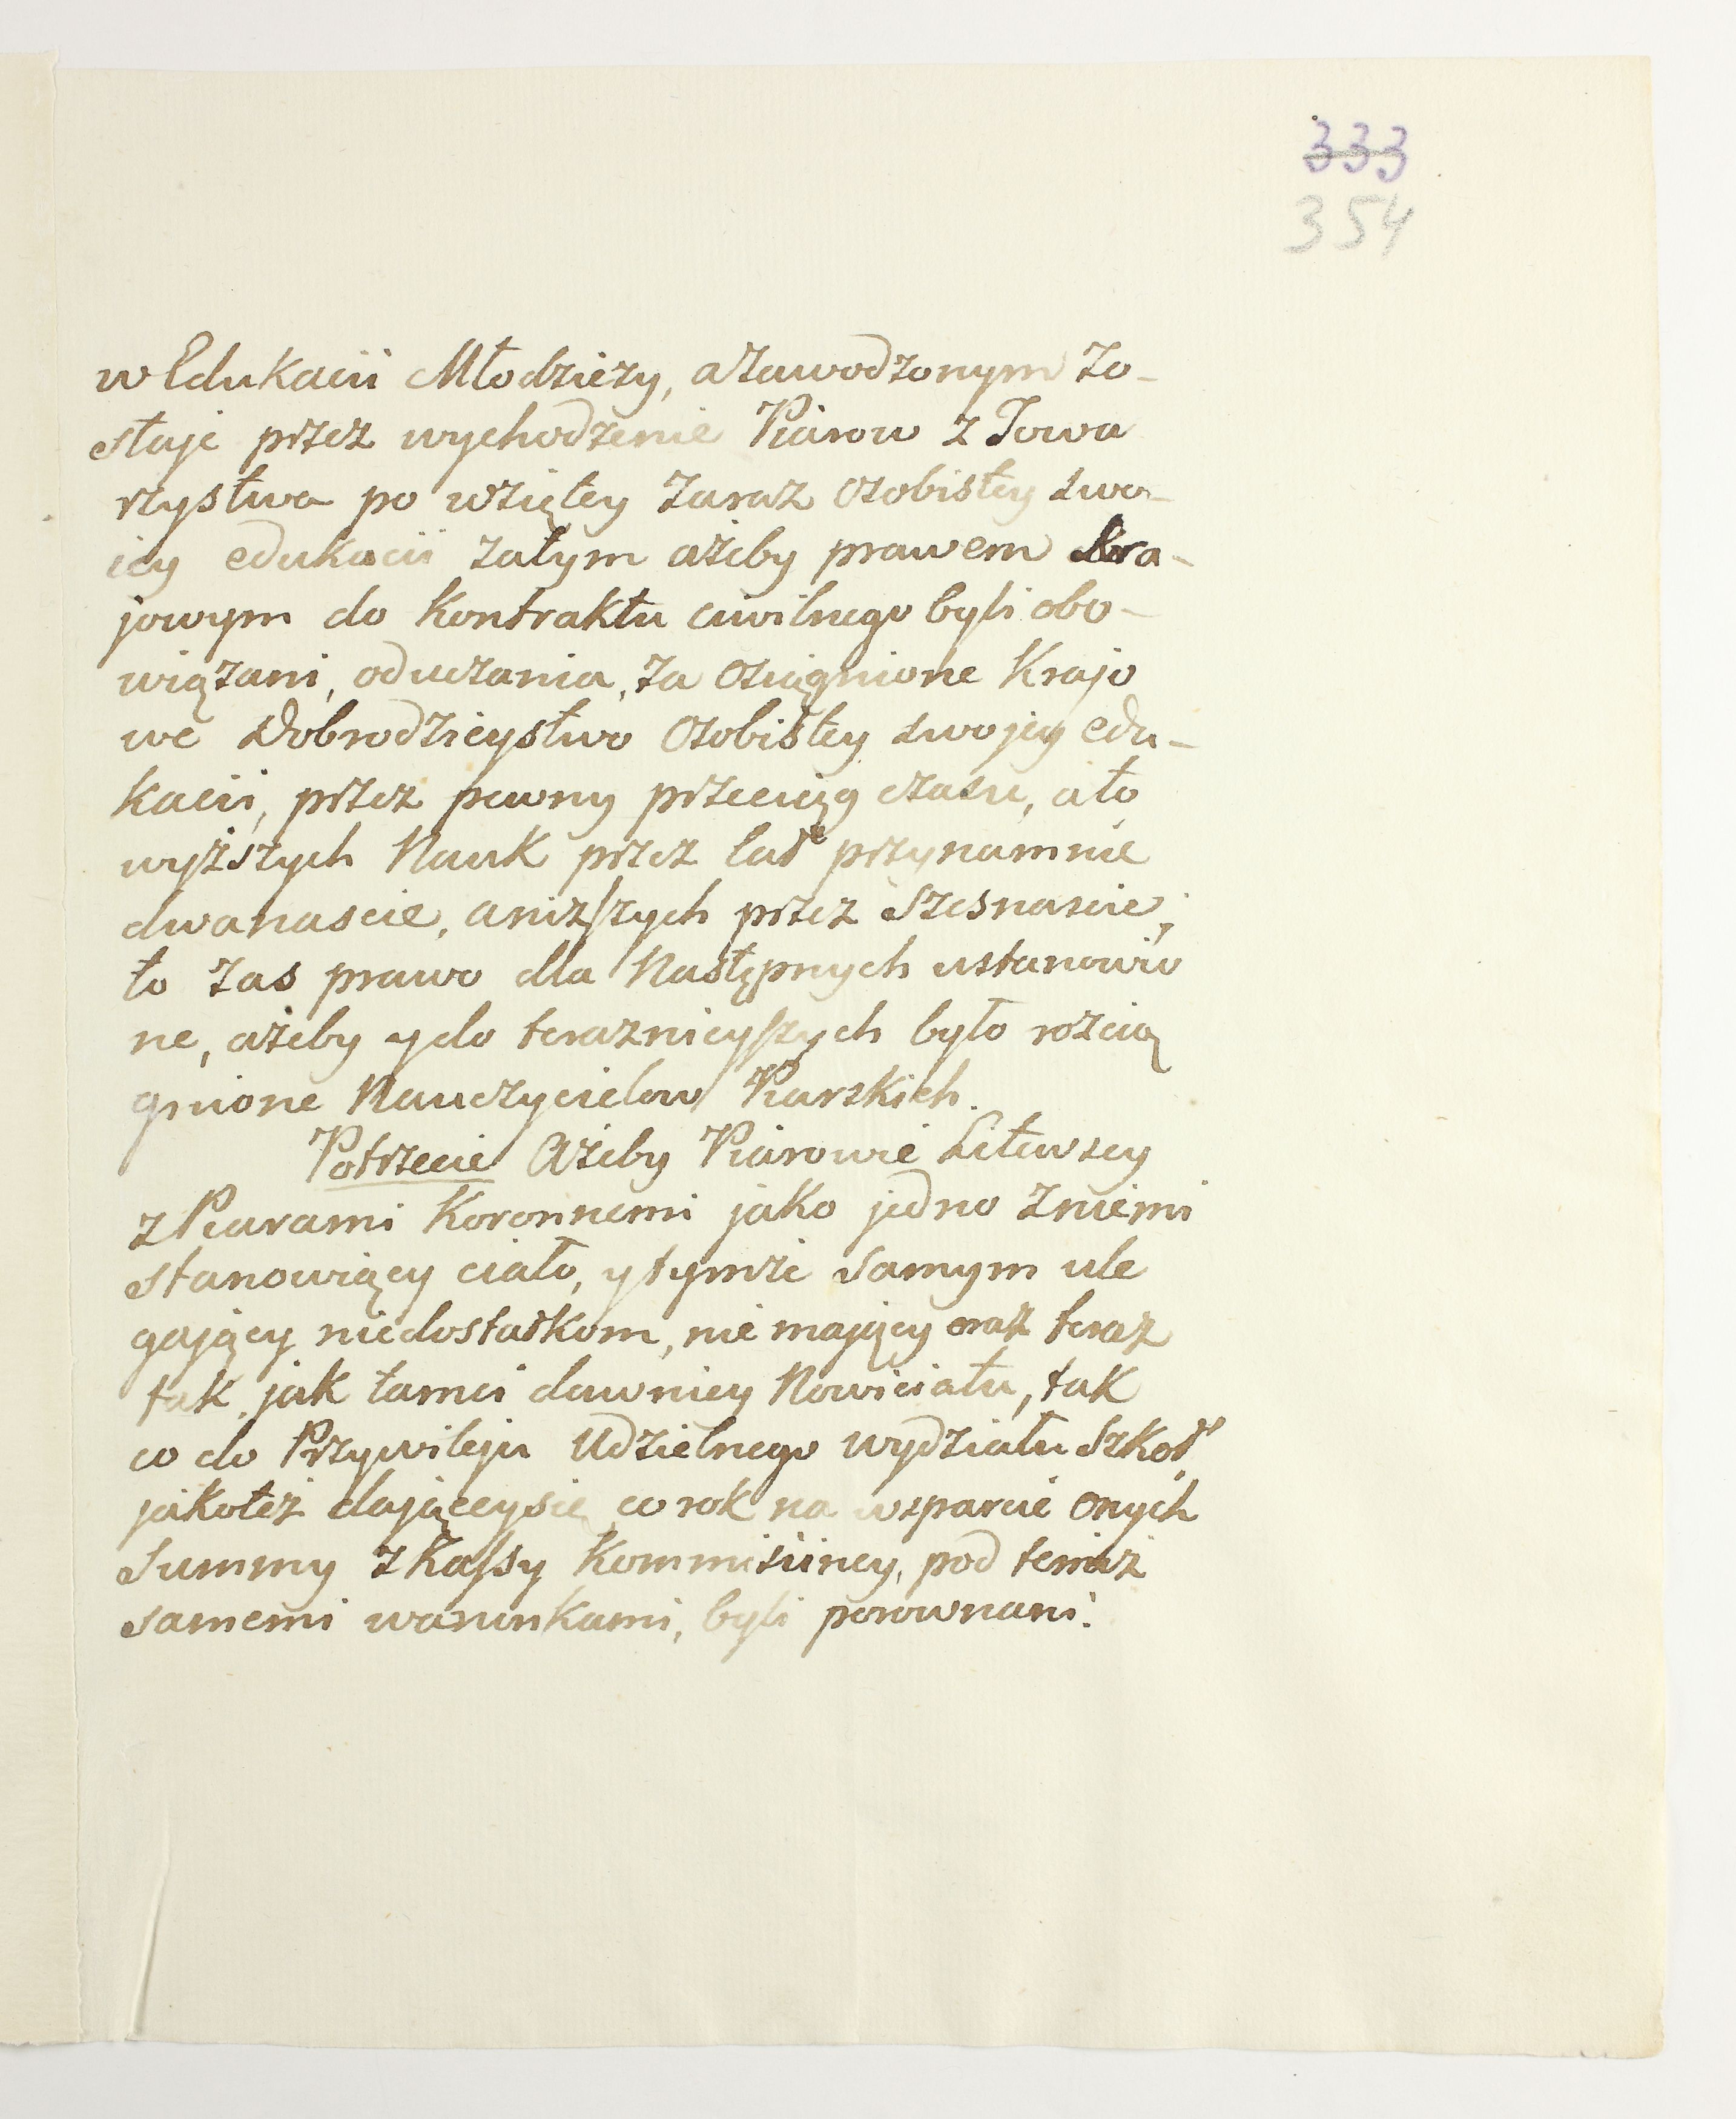 333
354
w Edukacii Młodzieży, a zawodzonym zo-
staje przez wychodzenie Piarow z Towa
rzystwa po wziętey zaraz osobistey swo-
iey edukacii zatym ażeby prawem kra-
jowym do kontraktu ciwilnego byli obo-
wiązani, oduczania, za osiągnione Krajo
we Dobrodzieystwo osobistey swojey edu-
kacii, przez pewny przeciąg czasu, ato
wyższych Nauk przez lat przynamnie
dwanascie, aniższych przez szesnascie;
to zas prawo dla Następnych ustanowio
ne, ażeby ydo teraznieyszych było rozcią
gnione Nauczycielow Piarskich.
Potrzecie Ażeby Piarowie Litewscy
z Piarami Koronnemi jako jedno zniemi
stanowiący ciało, ytymże samym ule
gający niedostatkom, nie mający oraz teraz
tak jak tamci dawniey Nowiciatu, tak
co do Przywileju Udzielnego wydziału Szkoł
jakoteż dającey się co rok na wsparcie onych
Summy z Kassy Kommissiiney, pod temiż
samemi warunkami, byli porownani.